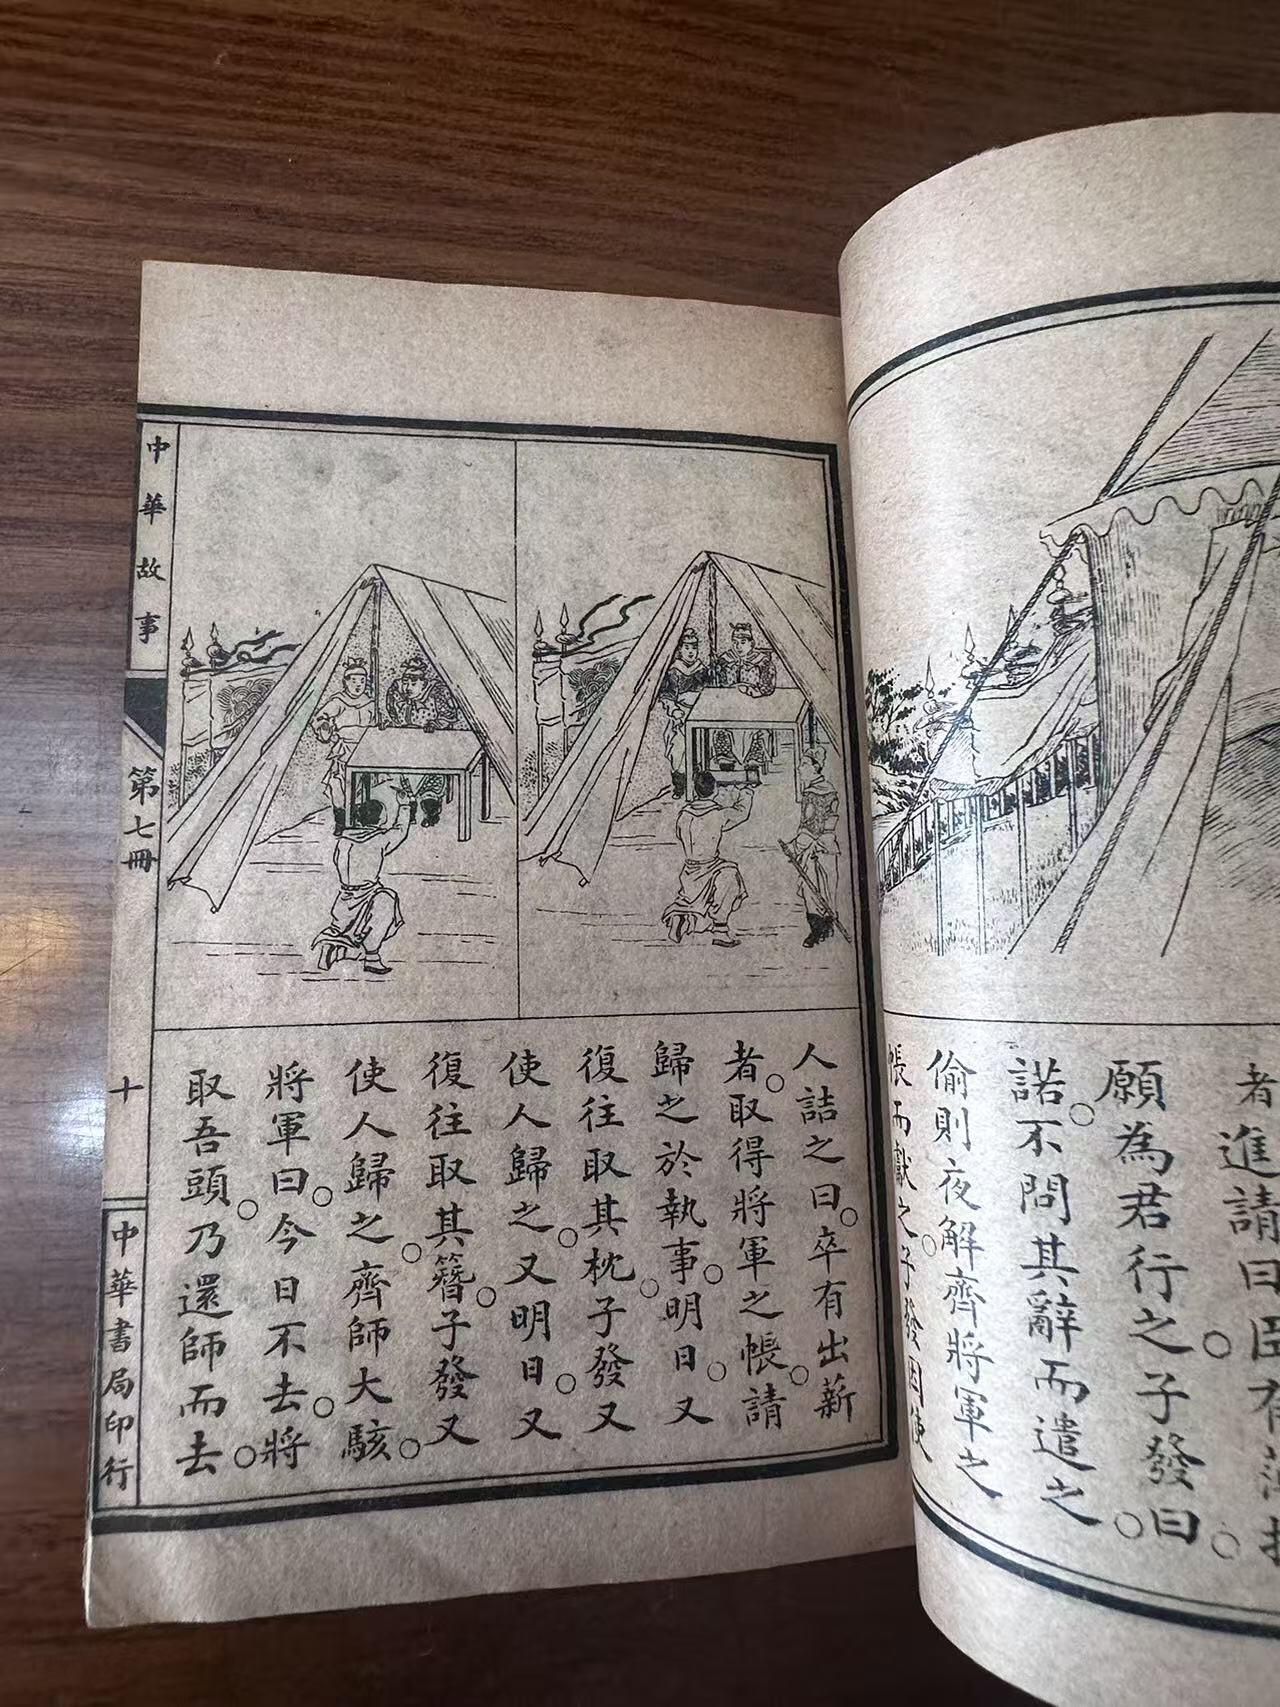 者進請曰臣有
願為君行之子發曰。
諾。不問其辭而遣之。
偷則夜解齊將軍之
帳而獻之。子發因使
人詰之曰。卒有出薪
者。取得將軍之帳。請
歸之於執事。明日。又
復往取其枕。子發又
使人歸之。又明日。又
復往取其簪。子發又
使人歸之。齊師大駭。
將軍曰。今日不去。將
取吾頭。乃還師而去。
中華故事
第七冊
十
中華書局印行